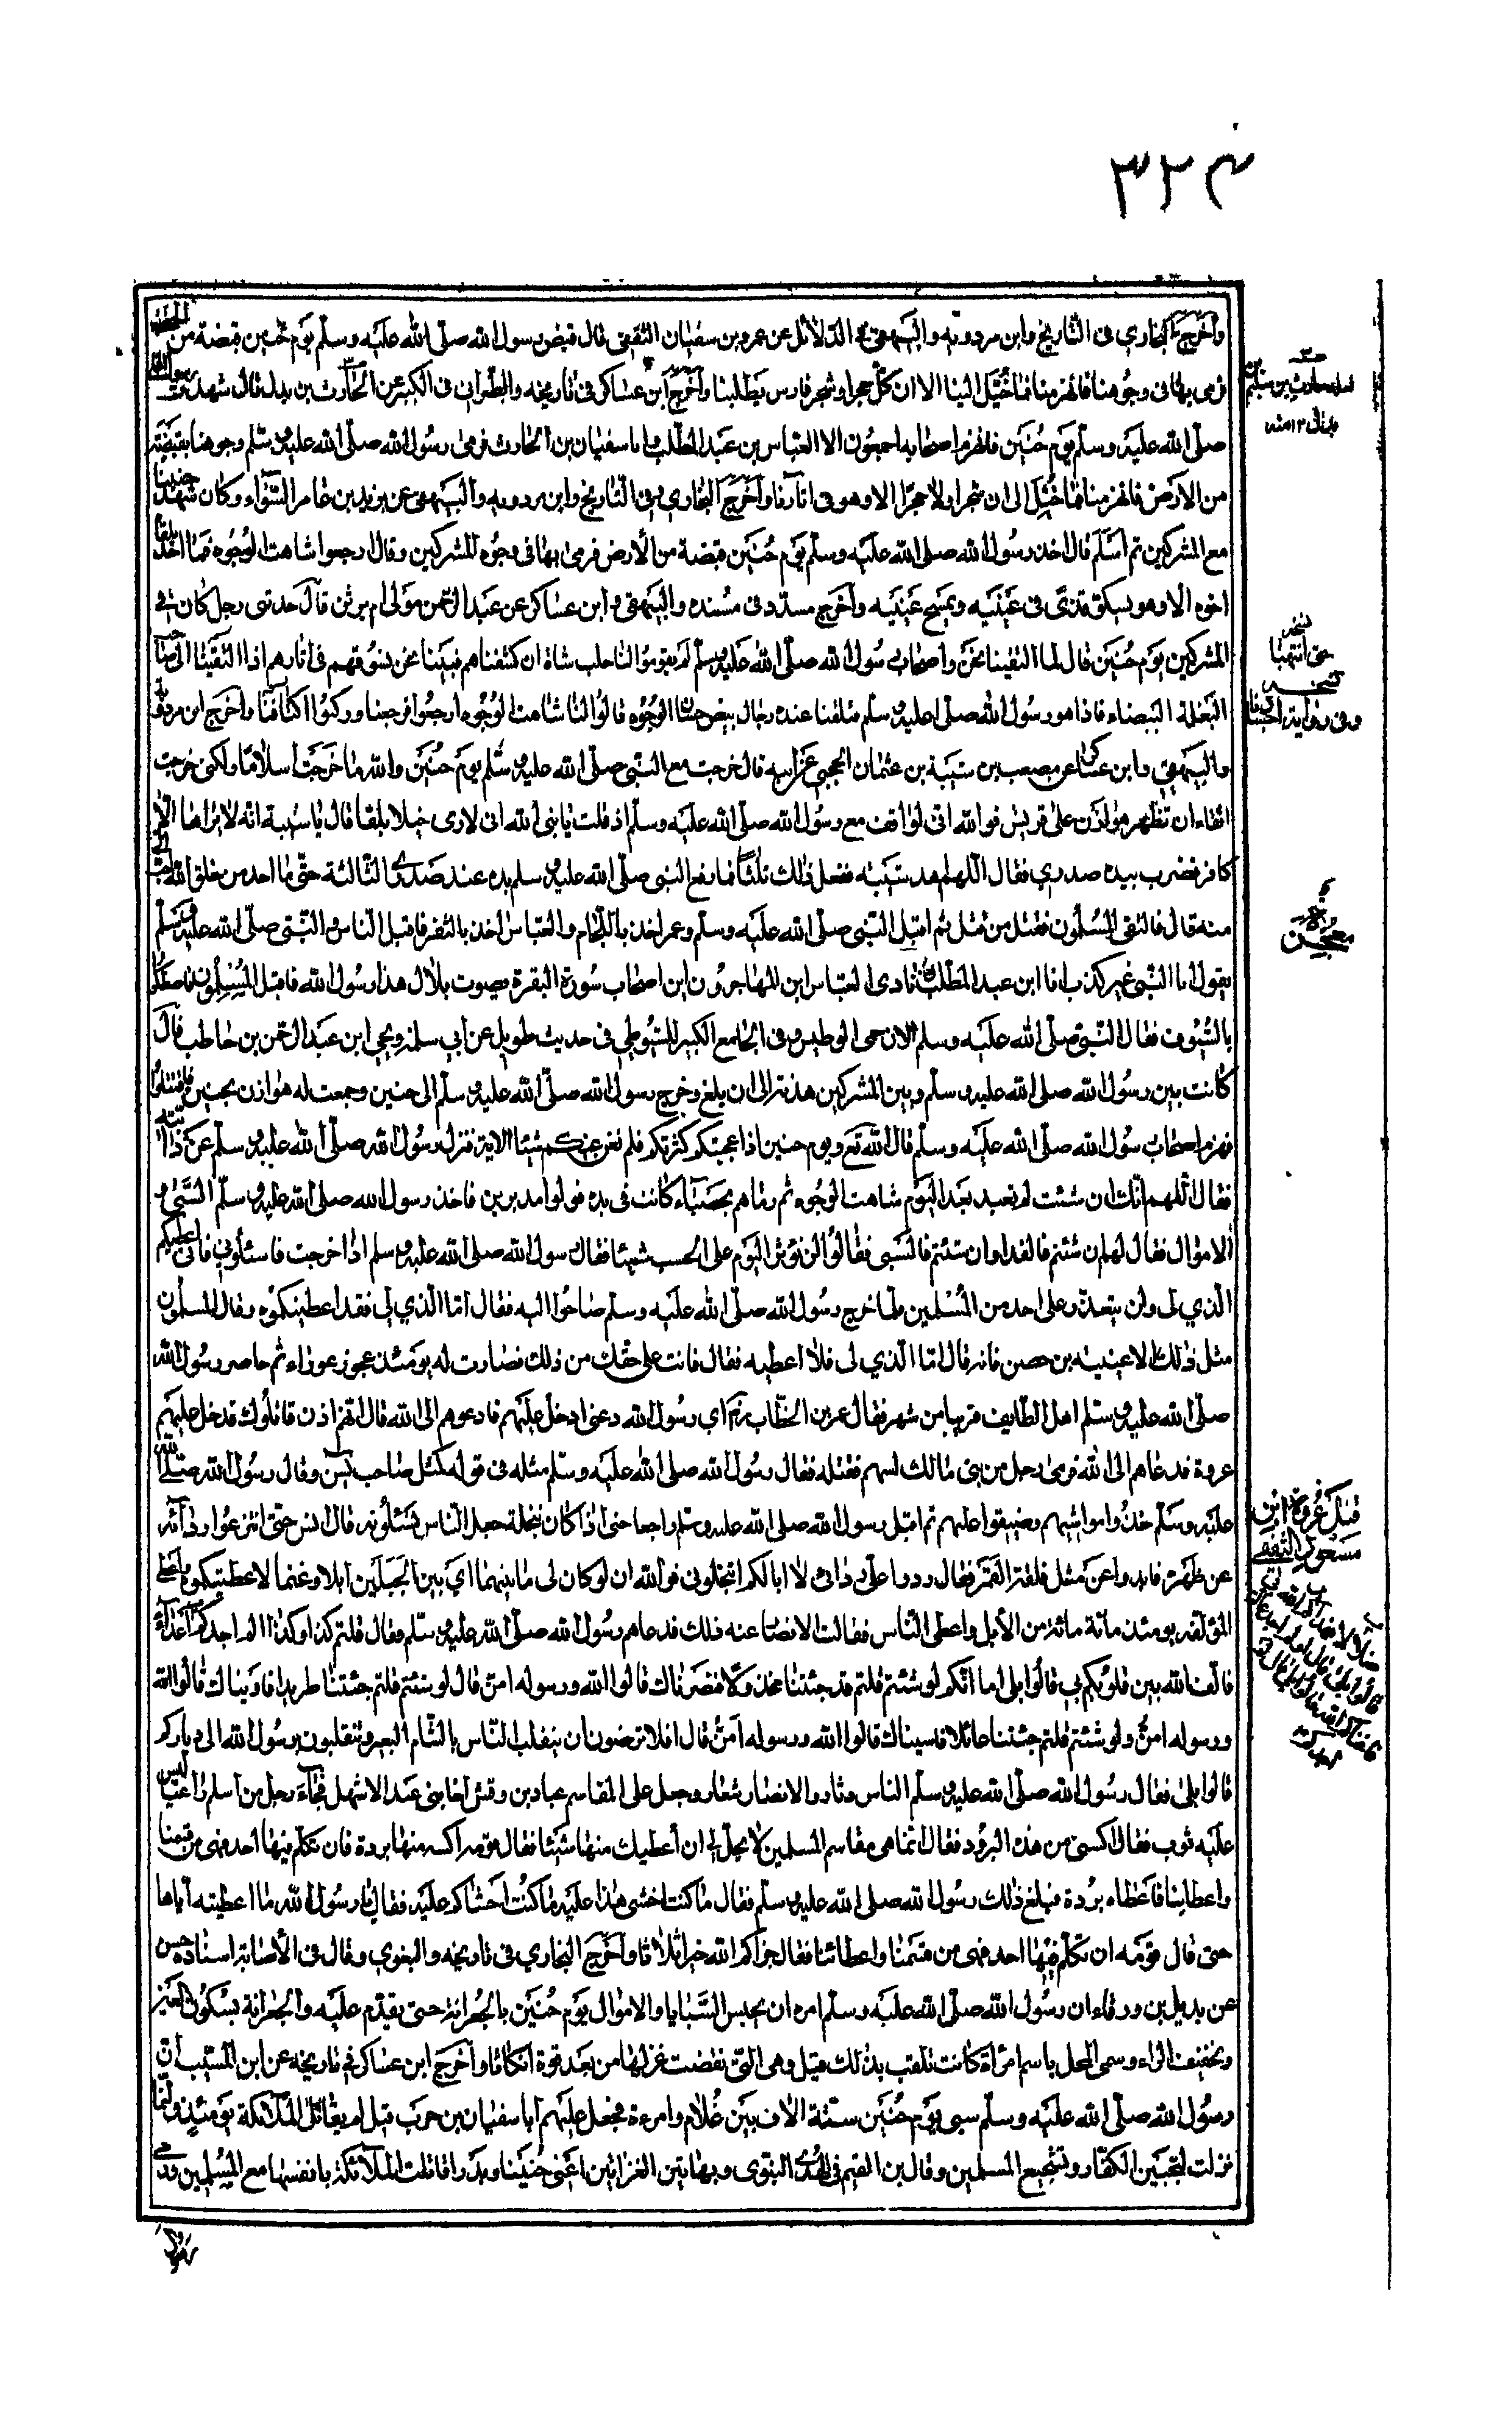 ٣٢٤
وأخرج البخاري في التاريخ وابن مردويه والبيهقي في الدلائل عن عمرو بن سفيان الثقفي قال قبض رسول الله صلى الله عليه وسلم يوم حنين قبضة من الحصى
فرمى بها في وجوهنا فانهزمنا فما خُيّل الينا الا ان كل حجر او شجر فارس يطلبنا وأخرج ابن عساكر في تاريخه والطبراني في الكبير عن الحارث بن بدل قال شهدت رسول الله
صلى الله عليه وسلم يوم حنين فانهزم اصحابه اجمعون الا العباس بن عبد المطلب وابا سفيان بن الحارث فرمى رسول الله صلى الله عليه وسلم وجوهنا بقبضة
من الارض فانهزمنا فما خُيّل الي ان شجرا ولا حجرا الا وهو في اثارنا وأخرج البخاري في التاريخ وابن مردويه والبيهقي عن يزيد بن عامر السوائي وكان شهد حنينا
مع المشركين ثم اسلم قال اخذ رسول الله صلى الله عليه وسلم يوم حنين قبضة من الارض فرمى بها في وجوه المشركين وقال ارجعوا شاهت الوجوه فما احد يلقا
اخوه الا وهو يشكو قذى في عينيه ويمسح عينيه وأخرج مسدد في مسنده والبيهقي وابن عساكر عن عبد الرحمن مولى ام برثن قال حدثني رجل كان في
المشركين يوم حنين قال لما التقينا نحن واصحاب رسول الله صلى الله عليه وسلم لم يقوموا لنا حلب شاة ان كشفناهم فبينا نحن نسوقهم في اثارهم اذا التقينا الى صاحب
البغلة البيضاء فاذا هو رسول الله صلى الله عليه وسلم فتلقنا عنده رجال بيض حسان الوجوه قالوا لنا شاهت الوجوه ارجعوا فرجعنا وركبوا اكتافنا وأخرج ابن مردويه
والبيهقي وابن عساكر عن مصعب بن شيبة بن عثمان الحجبي عن ابيه قال خرجت مع النبي صلى الله عليه وسلم يوم حنين والله ما خرجت اسلاما ولكن خرجت
اتقاء ان تظهر هوازن على قريش فوالله اني لواقف مع رسول الله صلى الله عليه وسلم اذ قلت يا نبي الله اني لارى خيلا بلقا قال يا شيبة انه لا يراها الا
كافر فضرب بيده صدري فقال اللهم اهد شيبة ففعل ذلك ثلثا فما رفع النبي صلى الله عليه وسلم يده عن صدري الثالثة حتى ما احد من خلق الله احب الي
منه قال فالتقى المسلمون فقتل من قتل ثم اقبل النبي صلى الله عليه وسلم وعمر اخذ باللجام والعباس اخذ بالثفر فاقبل الناس والنبي صلى الله عليه وسلم
يقول انا النبي غير كذب انا ابن عبد المطلب فنادى العباس اين المهاجرون اين اصحاب سورة البقرة بصوت بلال هذا رسول الله فاقبل المسلمون فاصطكوا
بالسيوف فقال النبي صلى الله عليه وسلم الان حمي الوطيس وفي الجامع الكبير للسيوطي في حديث طويل عن ابي سلمة ويحيى ابن عبد الرحمن بن حاطب قال
كانت بين رسول الله صلى الله عليه وسلم وبين المشركين هدنة الى ان بلغ وخرج رسول الله صلى الله عليه وسلم الى حنين وجمعت له هوازن بحنين فاقتتلوا
فهزم اصحاب رسول الله صلى الله عليه وسلم قال الله تع ويوم حنين اذ اعجبتكم كثرتكم فلم تغن عنكم شيئا الاية فنزل رسول الله صلى الله عليه وسلم عن دابته
فقال اللهم انك ان شئت لم تعبد بعد اليوم شاهت الوجوه ثم رماهم بحصباء كانت في يده فولوا مدبرين فاخذ رسول الله صلى الله عليه وسلم السبي و
الاموال فقال لهم ان شئتم فالفداء وان شئتم فالسبي فقالوا لن نؤثر اليوم على الحسب شيئا فقال رسول الله صلى الله عليه وسلم اذا خرجت فاسئلوني فاني اعطيكم
الذي لي ولن يتعذر على احد من المسلمين فلما خرج رسول الله صلى الله عليه وسلم صاحوا اليه فقال اما الذي لي فقد اعطيتكموه وقال المسلمون
مثل ذلك الا عيينة بن حصن فانه قال اما الذي لي فلا اعطيه فقال فانت على حقك من ذلك فصارت له يومئذ عجوز عوراء ثم حاصر رسول الله
صلى الله عليه وسلم اهل الطايف قريبا من شهر فقال عمر بن الخطاب اي رسول الله دعني ادخل عليهم فادعوهم الى الله قال انهم اذن قاتلوك فدخل عليهم
عروة فدعاهم الى الله فرمى رجل من بني مالك بسهم فقتله فقال رسول الله صلى الله عليه وسلم مثله في قومه كمثل صاحب يس وقال رسول الله صلى الله
عليه وسلم خذوا مواشيهم وضيقوا عليهم ثم اقبل رسول الله صلى الله عليه وسلم راجعا حتى اذا كان بنخلة جعل الناس يسئلونه قال انس حتى انتزعوا رداءه
عن ظهره فابدوا عن مثل فلقة القمر فقال ردوا علي ردائي لا ابا لكم اتبخلوني فوالله ان لو كان لي ما بينهما اي بين الجبلين ابلا وغنما لاعطيتكموه فاعطى
المؤلفة يومئذ مائة مائة من الابل واعطى الناس فقالت الانصار عند ذلك فدعاهم رسول الله صلى الله عليه وسلم فقال قلتم كذا وكذا الم اجدكم اعداء
فالف الله بين قلوبكم بي قالوا بلى اما انكم لو شئتم قلتم قد جئتنا مخذولا فنصرناك قالوا الله ورسوله امن قال لو شئتم قلتم جئتنا طريدا فاويناك قالوا الله
ورسوله امن ولو شئتم قلتم جئتنا عائلا فاسيناك قالوا الله ورسوله امن قال افلا ترضون ان ينقلب الناس بالشاء والبعير وتنقلبون برسول الله الى دياركم
قالوا بلى فقال رسول الله صلى الله عليه وسلم الناس دثار والانصار شعار وجعل على المقاسم عباد بن وقش اخا بني عبد الاشهل فجاء رجل من اسلم عاريا ليس
عليه ثوب فقال اكسني من هذه البرود فقال انما هي مقاسم المسلمين لا يحل لي ان أعطيك منها شيئا فقال قومه اكسه منها بردة فان تكلم فيها احد فهي من قسمنا
واعطاينا فاعطاه بردة فبلغ ذلك رسول الله صلى الله عليه وسلم فقال ما كنت اخشى هذا عليه ما كنت اخشاكم عليه فقال يا رسول الله ما اعطيته اياها
حتى قال قومه ان تكلم فيها احد فهي من قسمنا واعطائنا فقال جزاكم الله خيرا ثلاثا وأخرج البخاري في تاريخه والبغوي وقال في الاصابة اسناده حسن
عن بديل بن ورقاء ان رسول الله صلى الله عليه وسلم امره ان يحبس السبايا والاموال يوم حنين بالجعرانة حتى يقدم عليه والجعرانة بسكون العين
وتخفيف الراء وسمي المحل باسم امرأة كانت تلقب بذلك قيل وهي التي نقضت غزلها من بعد قوة انكاثا وأخرج ابن عساكر في تاريخه عن ابن المسيب ان
رسول الله صلى الله عليه وسلم سبى يوم حنين ستة الاف بين غلام وامرءة فجعل عليهم ابا سفيان بن حرب قيل لم يقاتل الملائكة يومئذ وانما
نزلت لتجبين الكفار وتشجيع المسلمين وقال بن القيم في الهدى النبوي وبهاتين الغزاتين اعني حنينا وبدرا قاتلت الملائكة بانفسها مع المسلمين ورمى
رسول
نسخه
حتى انتهينا
نسخه
وفي رواية
معجزه
قتل عروة ابن
مسعود الثقفي